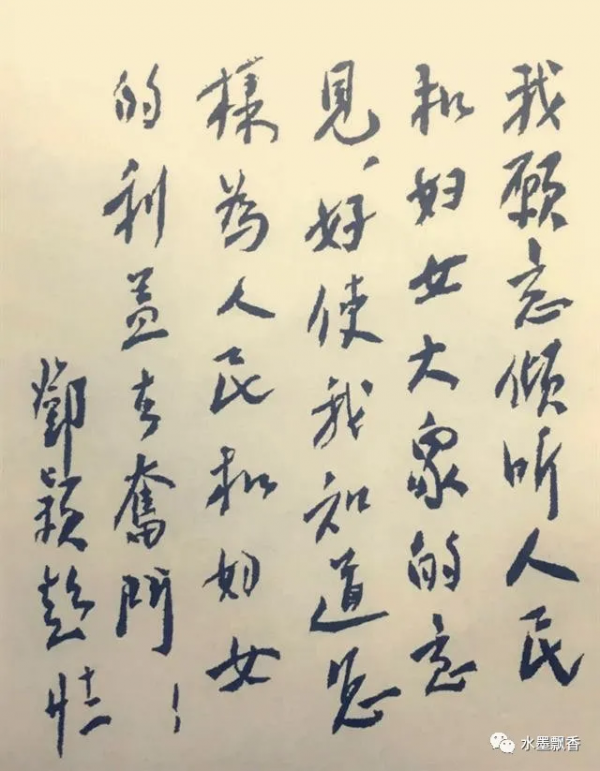 我願意傾听人民
和妇女大衆的意
見、好使我知道怎
樣為人民和妇女
的利益去奮鬥!
鄧颖超
水墨飘香